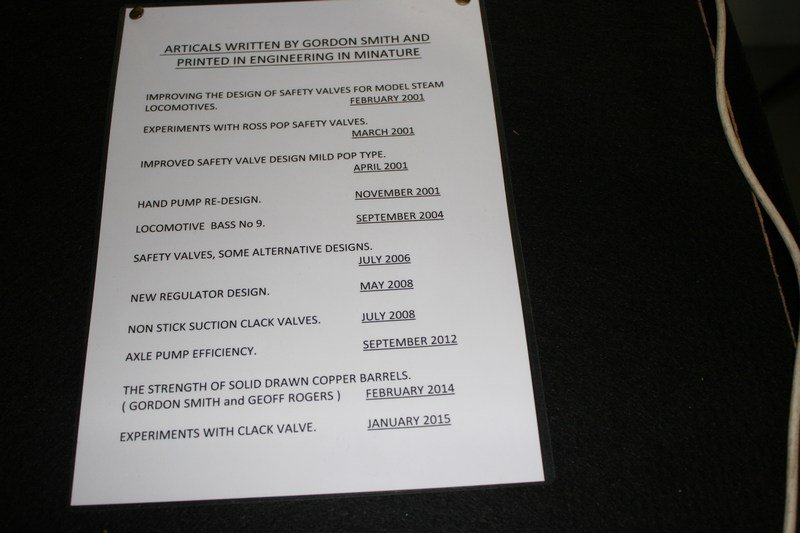 ARTICALS WRITTEN BY GORDON SMITH AND
PRINTED IN ENGINEERING IN MINATURE
IMPROVING THE DESIGN OF SAFETY VALVES FOR MODEL STEAM
LOCOMOTIVES. FEBRUARY 2001
EXPERIMENTS WITH ROSS POP SAFETY VALVES.
MARCH 2001
IMPROVED SAFETY VALVE DESIGN MILD POP TYPE.
APRIL 2001
HAND PUMP RE-DESIGN. NOVEMBER 2001
LOCOMOTIVE BASS No 9. SEPTEMBER 2004
SAFETY VALVES, SOME ALTERNATIVE DESIGNS.
JULY 2006
NEW REGULATOR DESIGN. MAY 2008
NON STICK SUCTION CLACK VALVES. JULY 2008
AXLE PUMP EFFICIENCY. SEPTEMBER 2012
THE STRENGTH OF SOLID DRAWN COPPER BARRELS.
( GORDON SMITH and GEOFF ROGERS ) FEBRUARY 2014
EXPERIMENTS WITH CLACK VALVE. JANUARY 2015